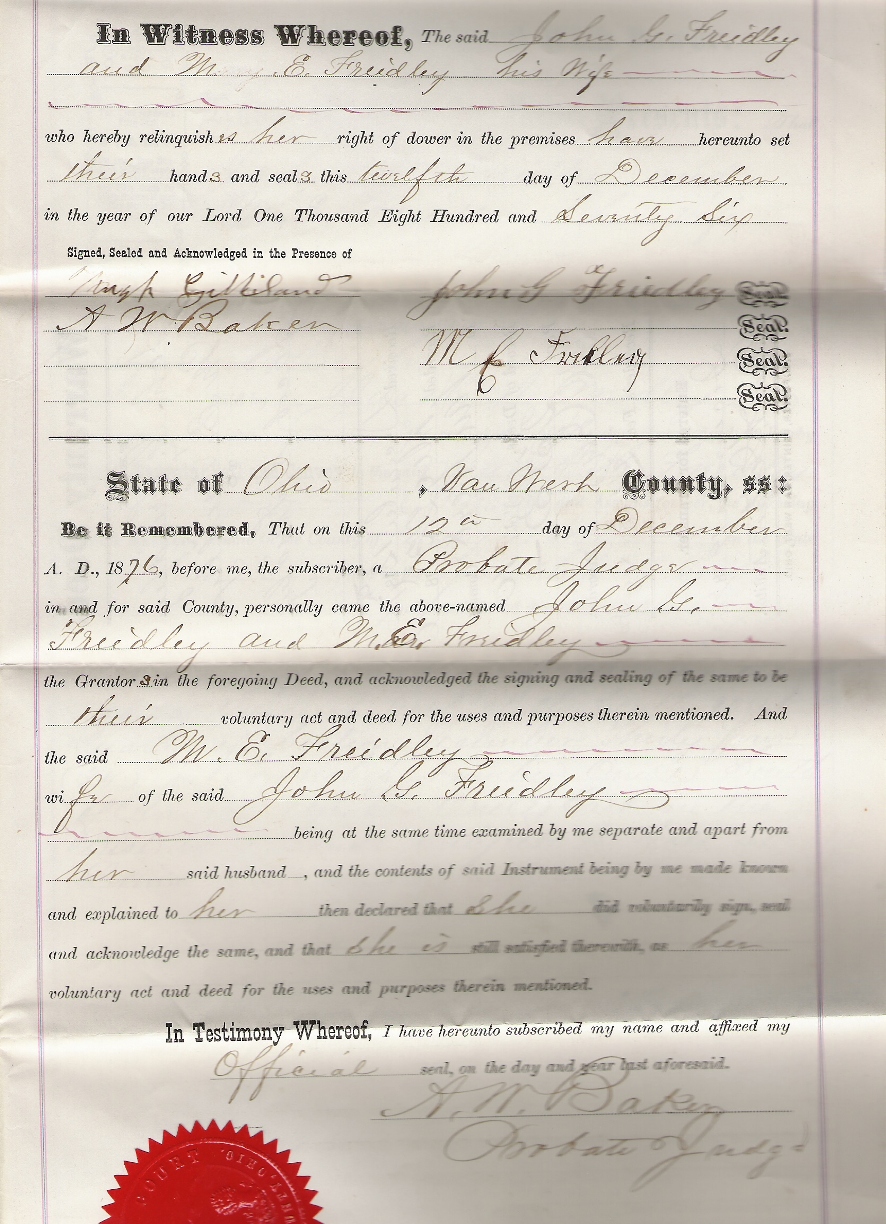 In Witness Whereof, The said John G. Freidley
and M E. Freidley his Wife
who hereby relinquishes her right of dower in the premises have hereunto set
their hands and seals this twelfth day of December
in the year of our Lord One Thousand Eight Hundred and Seventy Six
Signed, Sealed and Acknowledged in the Presence of
Hugh Gilliland John G Friedley Seal.
A W Baker Seal.
M E Seal.
Seal.
State of Ohio, Van Wert County, ss:
Be it Remembered, That on this 12th day of December
A. D., 1876, before me, the subscriber, a Probate Judge
in and for said County, personally came the above-named John G.
Freidley and M. E. Freidley
the Grantors in the foregoing Deed, and acknowledged the signing and sealing of the same to be
their voluntary act and deed for the uses and purposes therein mentioned. And
the said M. E. Freidley
wife of the said John G. Freidley
being at the same time examined by me separate and apart from
her said husband , and the contents of said Instrument being by me made known
and explained to her then declared that she did voluntarily sign, seal
and acknowledge the same, and that she is still satisfied therewith, as her
voluntary act and deed for the uses and purposes therein mentioned.
In Testimony Whereof, I have hereunto subscribed my name and affixed my
Official seal, on the day and year last aforesaid.
A. W. Baker
Probate Judge
COURT OHIO